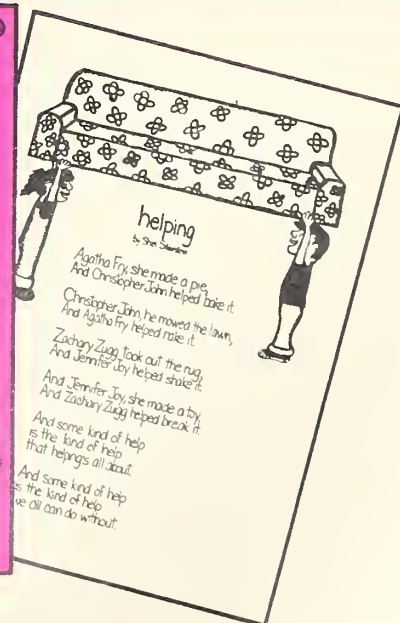 helping
by Shel Silverstein
Agatha Fry, she made a pie,
And Christopher John helped bake it.
Christopher John, he mowed the lawn,
And Agatha Fry helped rake it.
Zachary Zugg took out the rug,
And Jennifer Joy helped shake it.
And Jennifer Joy, she made a toy,
And Zachary Zugg helped break it.
And some kind of help
is the kind of help
that helping's all about.
And some kind of help
is the kind of help
we all can do without.